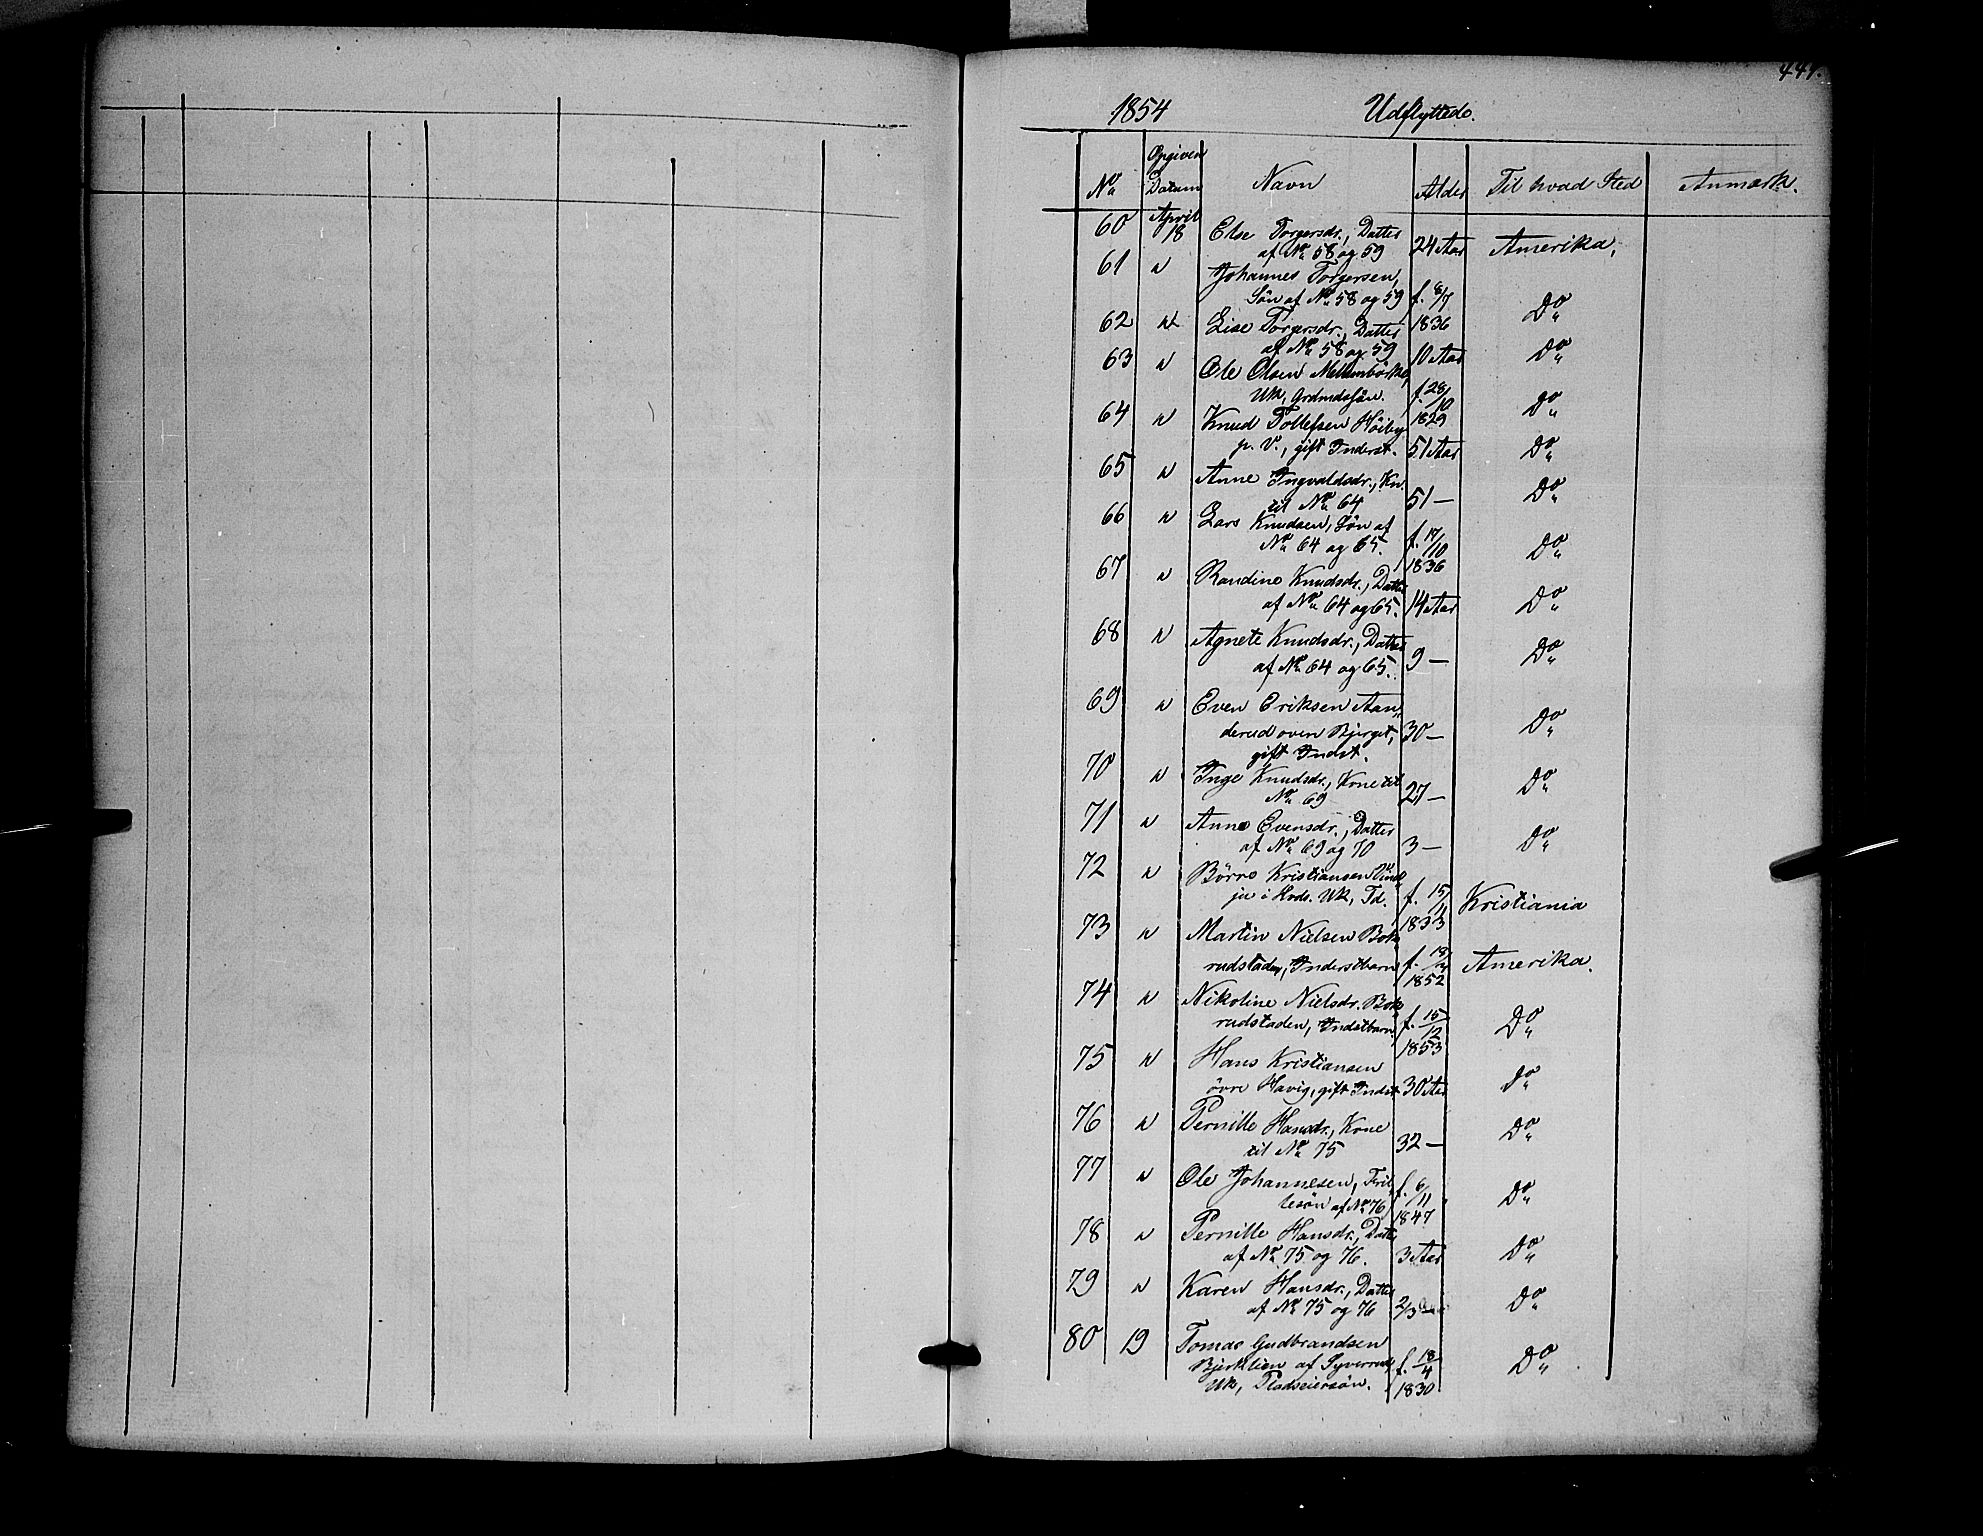 1854 Udflyttede.
No Opgiven Datum Navn Alder Til hvad Sted Anmærk.
60 April 18 Else Torgersdr., Datter
af No 58 og 59 24 Aar Amerika.
61 " Johannes Torgersen,
Søn af No 58 og 59 f. 8/7 1836 Do
62 " Lise Torgersdr., Datter
af No 58 og 59 10 Aar Do
63 " Ole Olsen
Uk, Grdmdssøn. f. 28/10 1829 Do
64 " Knud Tollefsen Høiby
p. V., gift Inderst. 51 Aar Do
65 " Anne Ingvaldsdr., Kn.
til No 64 51 — Do
66 " Lars Knudsen, Søn af
No 64 og 65. f. 17/10 1836 Do
67 " Randine Knudsdr., Datter
af No 64 og 65. 14 Aar Do
68 " Agnete Knudsdr., Datter
af No 64 og 65. 9 — Do
69 " Even Eriksen Aan„
derud oven Bjerget, 30 — Do
gift Indst.
70 " Inge Knudsdr., Kone til
No 69 27 — Do
71 " Anne Evensdr., Datter
af No 69 og 70 3 — Do
72 " Børre Kristiansen
i Krds. Uk, Td. f. 15/11 1833 Kristiania
73 " Martin Nielsen Bok„
rudstaden, Inderstbarn f. 1852 Amerika.
74 " Nikoline Nielsdr. Bok„
rudstaden, Indstbarn f. 15/12 1853 Do
75 " Hans Kristiansen
øvre Havig, gift Indst. 30 Aar Do
76 " Pernille Hansdr., Kone
til No 75 32 — Do
77 " Ole Johannesen, Fril„
lesøn af No 76 f. 6/11 1847 Do
78 " Pernille Hansdr., Datter
af No 75 og 76. 3 Aar Do
79 " Karen Hansdr., Datter
af No 75 og 76 2/3 — Do
80 19 Tomas Gudbrandsen
Bjerklien af Syverrud
Uk, Pladseiersøn. f. 18/4 1830 Do